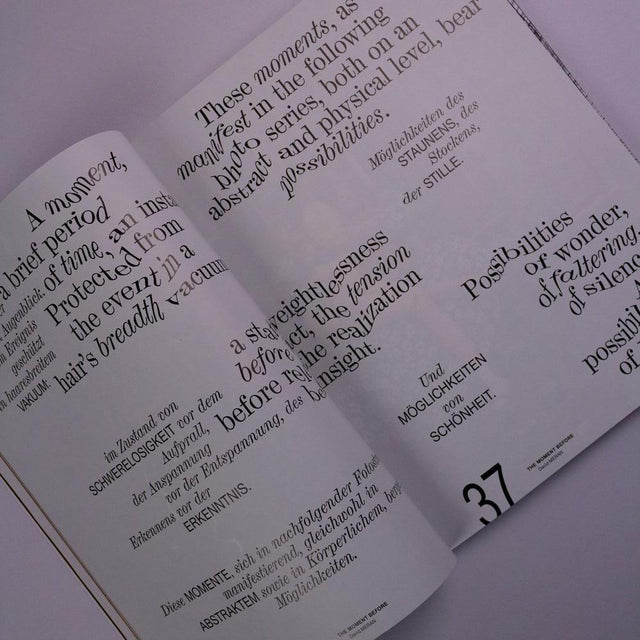 A moment,
a brief period
of time, an
Augenblick,
Protected from
Ereignis
geschützt
the event in a
haaresbreitem
hair's breadth vacuum
VAKUUM:
a
before
before
im Zustand von
SCHWERELOSIGKEIT vor dem
Aufprall,
der Anspannung
vor der Entspannung, des
Erkennens vor der
ERKENNTNIS.
Diese MOMENTE, sich in nachfolgender
manifestierend, gleichwohl in
ABSTRAKTEM sowie in Körperlichem,
Möglichkeiten.
THE MOMENT BEFORE
These moments, as
manifest in the following
photo series, both on an
abstract and physical level, bear
possibilities.
Möglichkeiten des
STAUNENS, des
Stockens,
der STILLE.
weightlessness
the tension
the realization
insight.
Possibilities
of wonder,
of faltering,
of silence
possibil
of
Und
MÖGLICHKEITEN
von
SCHÖNHEIT.
37
THE MOMENT BEFORE